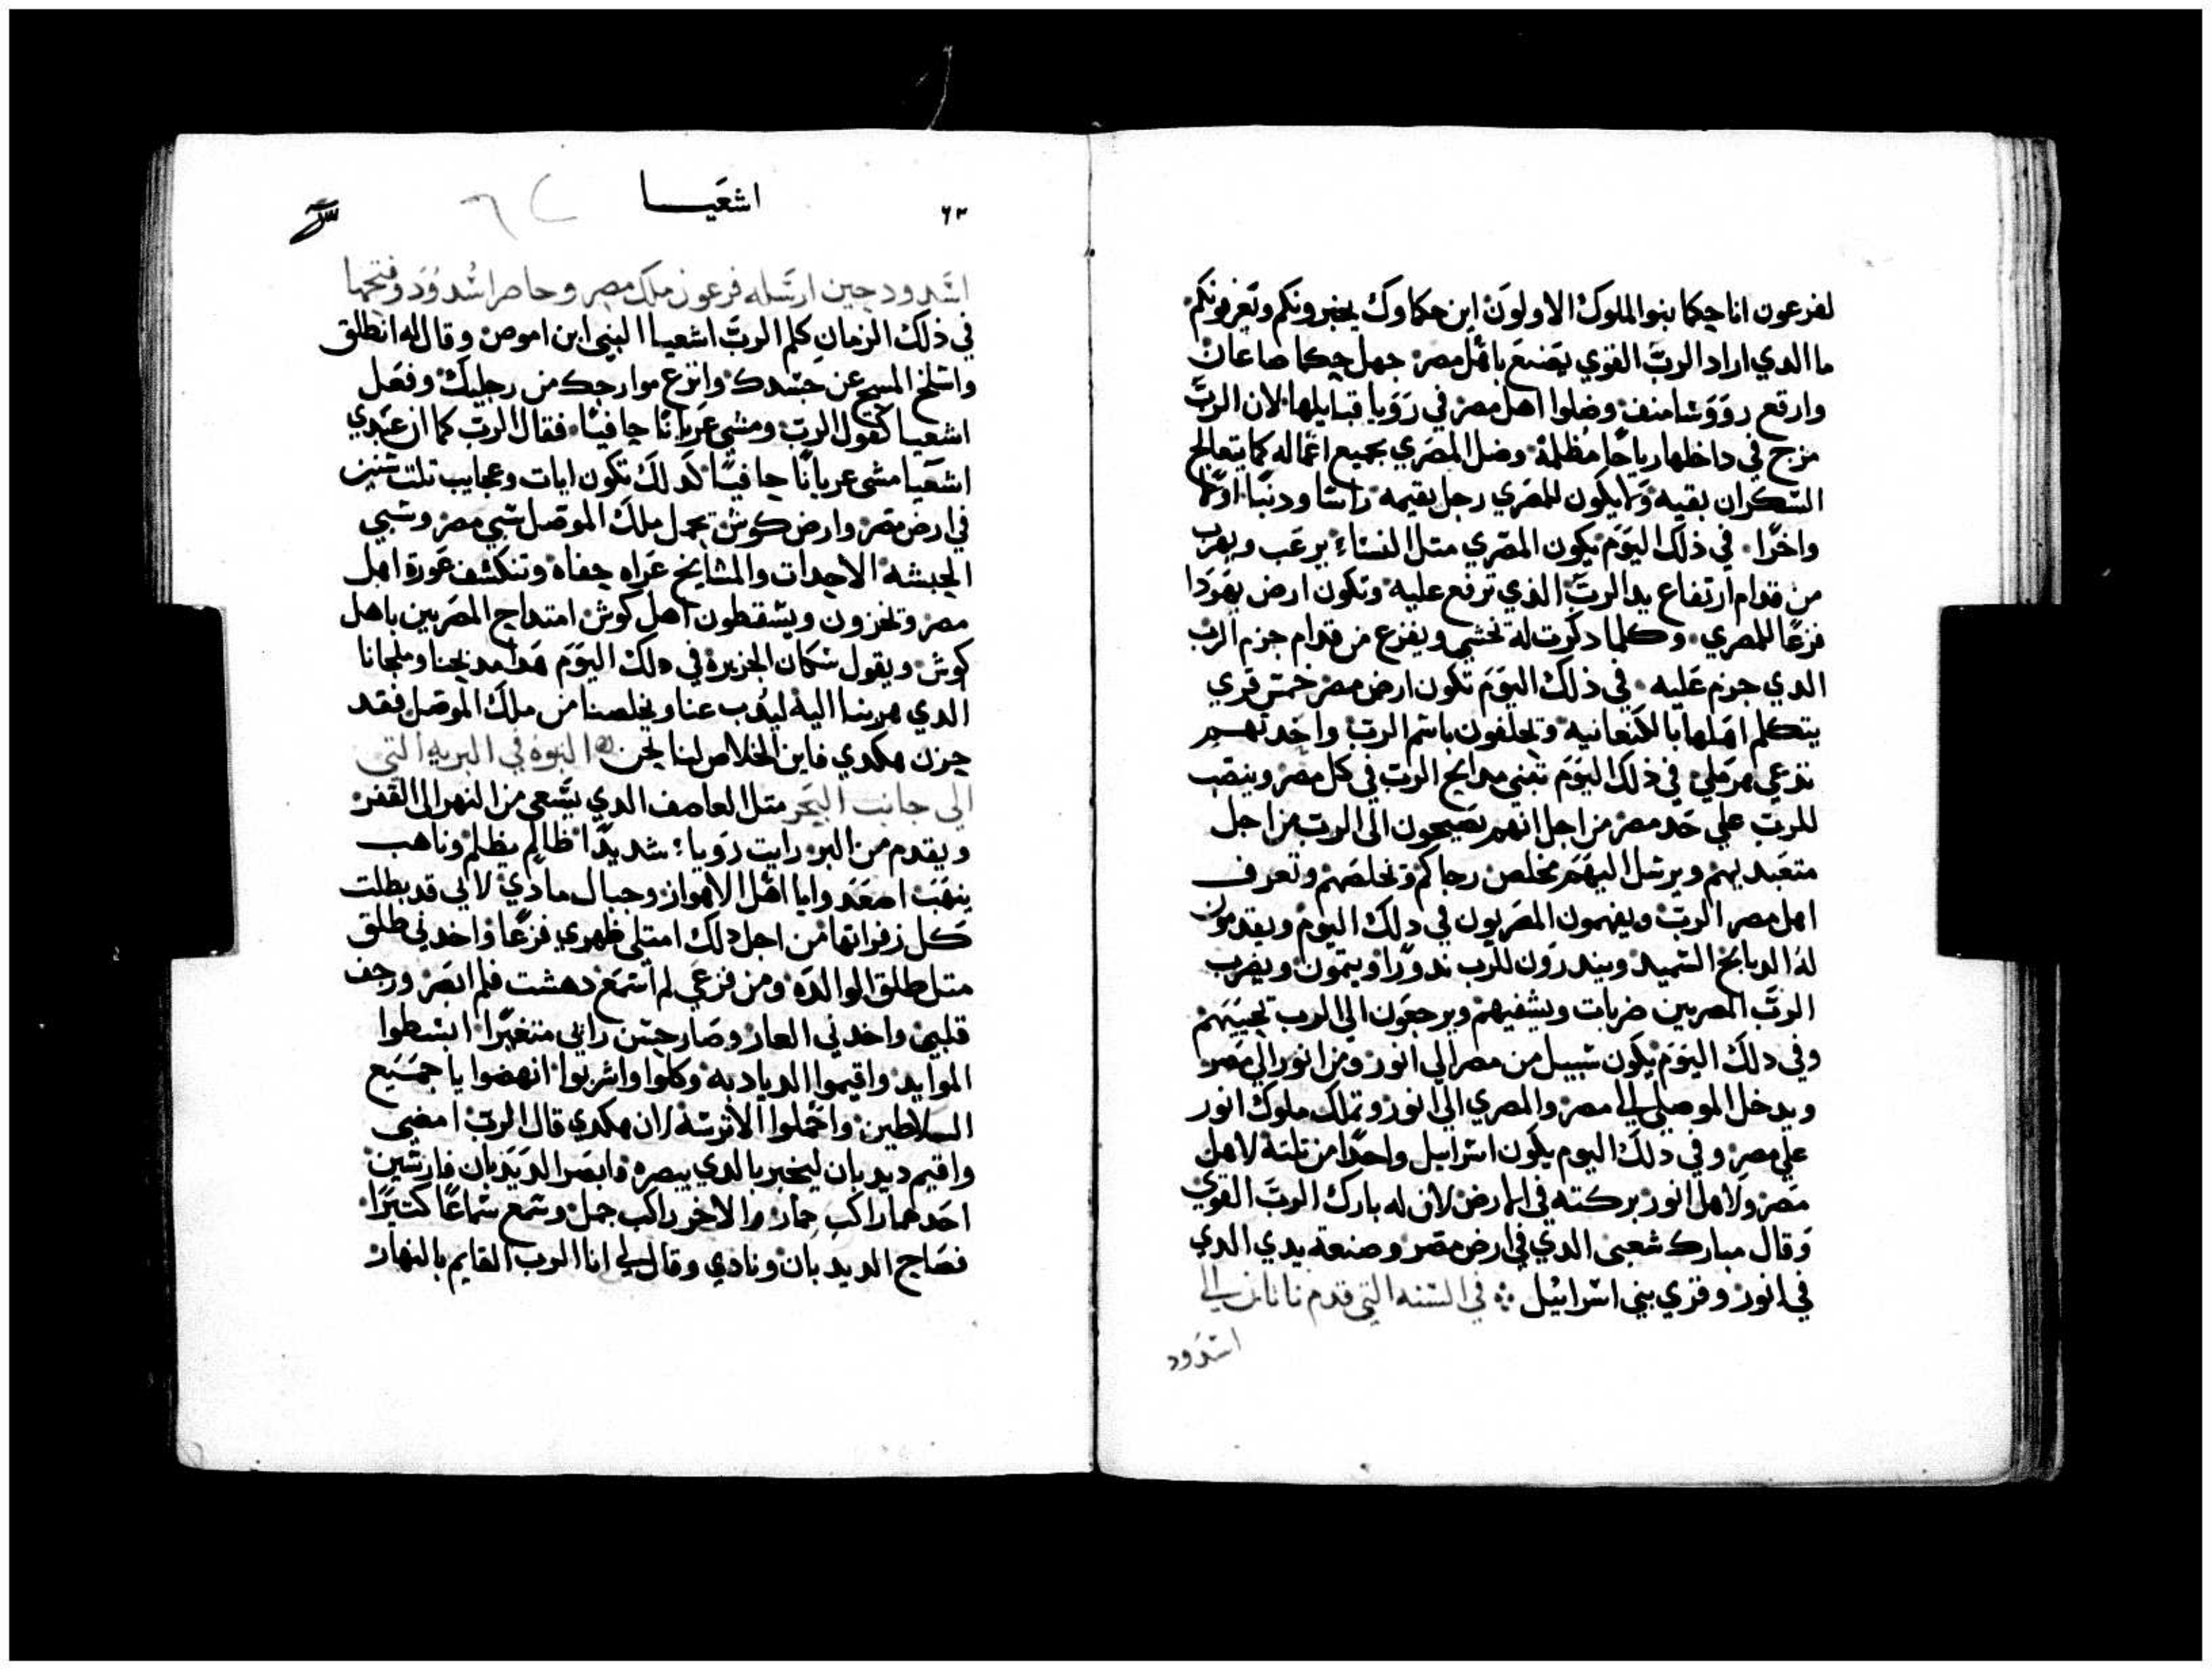 لفرعون انا حكما بنوا الملوك الاولون اين حكماوك يخبرونكم وتعرفونكم
ما الدي اراد الرب القوي يصنع باهل مصر جهل حكما صاعان
وارتفع رووسا منف وضلوا اهل مصر في رويا قبايلها لان الرب
مزج في داخلها رياحا مظلمة وضل المصري بجميع اعماله كما يتعالج
السكران بقيه ولا يكون للمصري رجل يقيمه راسا ودنبا اولا
واخرا في ذلك اليوم يكون المصري متل النساء يرعب ويهرب
من قدام ارتفاع يد الرب الذي ترفع عليه وتكون ارض يهودا
فزعا للمصري وكلما دكرت له تخشي ويفزع من قدام جزم الرب
الدي جزم عليه في ذلك اليوم تكون ارض مصر خمس قري
يتكلم اهلها بالكنعانيه وتحلفون باسم الرب واحدتهم
تدعي هرملي في ذلك اليوم تبني مدابح الرب في كل مصر وينصب
للرب علي حد مصر من اجل انهم يصيحون الى الرب من اجل
متعبديهم ويرسل اليهم مخلص رجاكم وتخلصهم وتعرف
اهل مصر الرب ويفهمون المصريون في دلك اليوم ويقدمون
له الدبايح السميد وينذرون للرب ندورا ويتمون ويضرب
الرب المصريين ضربات ويشفيهم ويرجعون الي الرب تجيبهم
وفي دلك اليوم يكون سبيل من مصر الي اتور ومن اتور الي مصر
ويدخل الموصلي الي مصر والمصري الي اتور وتملك ملوك اتور
علي مصر وفي دلك اليوم يكون اسراييل واحدا من تلتة لاهل
مصر ولاهل اتور بركته في الارض لان له بارك الرب القوي
وقال مبارك شعبي الدي في ارض مصر وصنعة يدي الدي
في اتور وقري بني اسرائيل في السنه التي قدم تاتان الي
اسدود
٦٢
اشعيا
اسدود حين ارسله فرعون ملك مصر وحاصر اسدود وفتحها
في ذلك الزمان كلم الرب اشعيا النبي ابن اموص وقال له انطلق
واسلخ المسح عن جسدك وانزع موارجك من رجليك وفعل
اشعيا كقول الرب ومشي عريانا حافيا فقال الرب كما ان عبدي
اشعيا مشي عريانا حافيا كدلك تكون ايات وعجايب تلت سنين
في ارض مصر وارض كوش يحمل ملك الموصل سبي مصر وسبي
الحبشه الاحدات والمشايخ عراه حفاه وتنكشف عورة اهل
مصر وتخزون ويسقطون اهل كوش امتداح المصريين باهل
كوش ويقول سكان الجزيرة في دلك اليوم هدا مديحنا وملجانا
الدي هربنا اليه ليدب عنا ويخلصنا من ملك الموصل فقد
حزن هكدي فاين الخلاص لنا نحن النبوة في البريه التي
الي جانب البحر متل العاصف الدي يسعي من النهر الى القفر
ويقدم من البر رايت رويا شديدا ظالم يظلم وناهب
ينهب اصعدوا يا اهل الاهواز وجبال مادي لاني قد بطلت
كل زفراتها من اجل دلك امتلي ظهري فزعا واخدني طلق
متل طلق الوالده ومن فزعي لم اسمع دهشت فلم ابصر ورجف
قلبي واخدني العار وصار حسن رايي متغيرا ابسطوا
الموايد واقيموا الديادبه وكلوا واشربوا انهضوا يا جميع
السلاطين واحملوا الاترسة لان هكدي قال الرب امضي
واقيم ديدبان ليخبر بالدي يبصره فابصر الديدبان فارسين
احدهما راكب حمار والاخر راكب جمل وسمع سماعا كتيرا
فصاح الديدبان ونادي وقال لي انا الرب القايم بالنهار